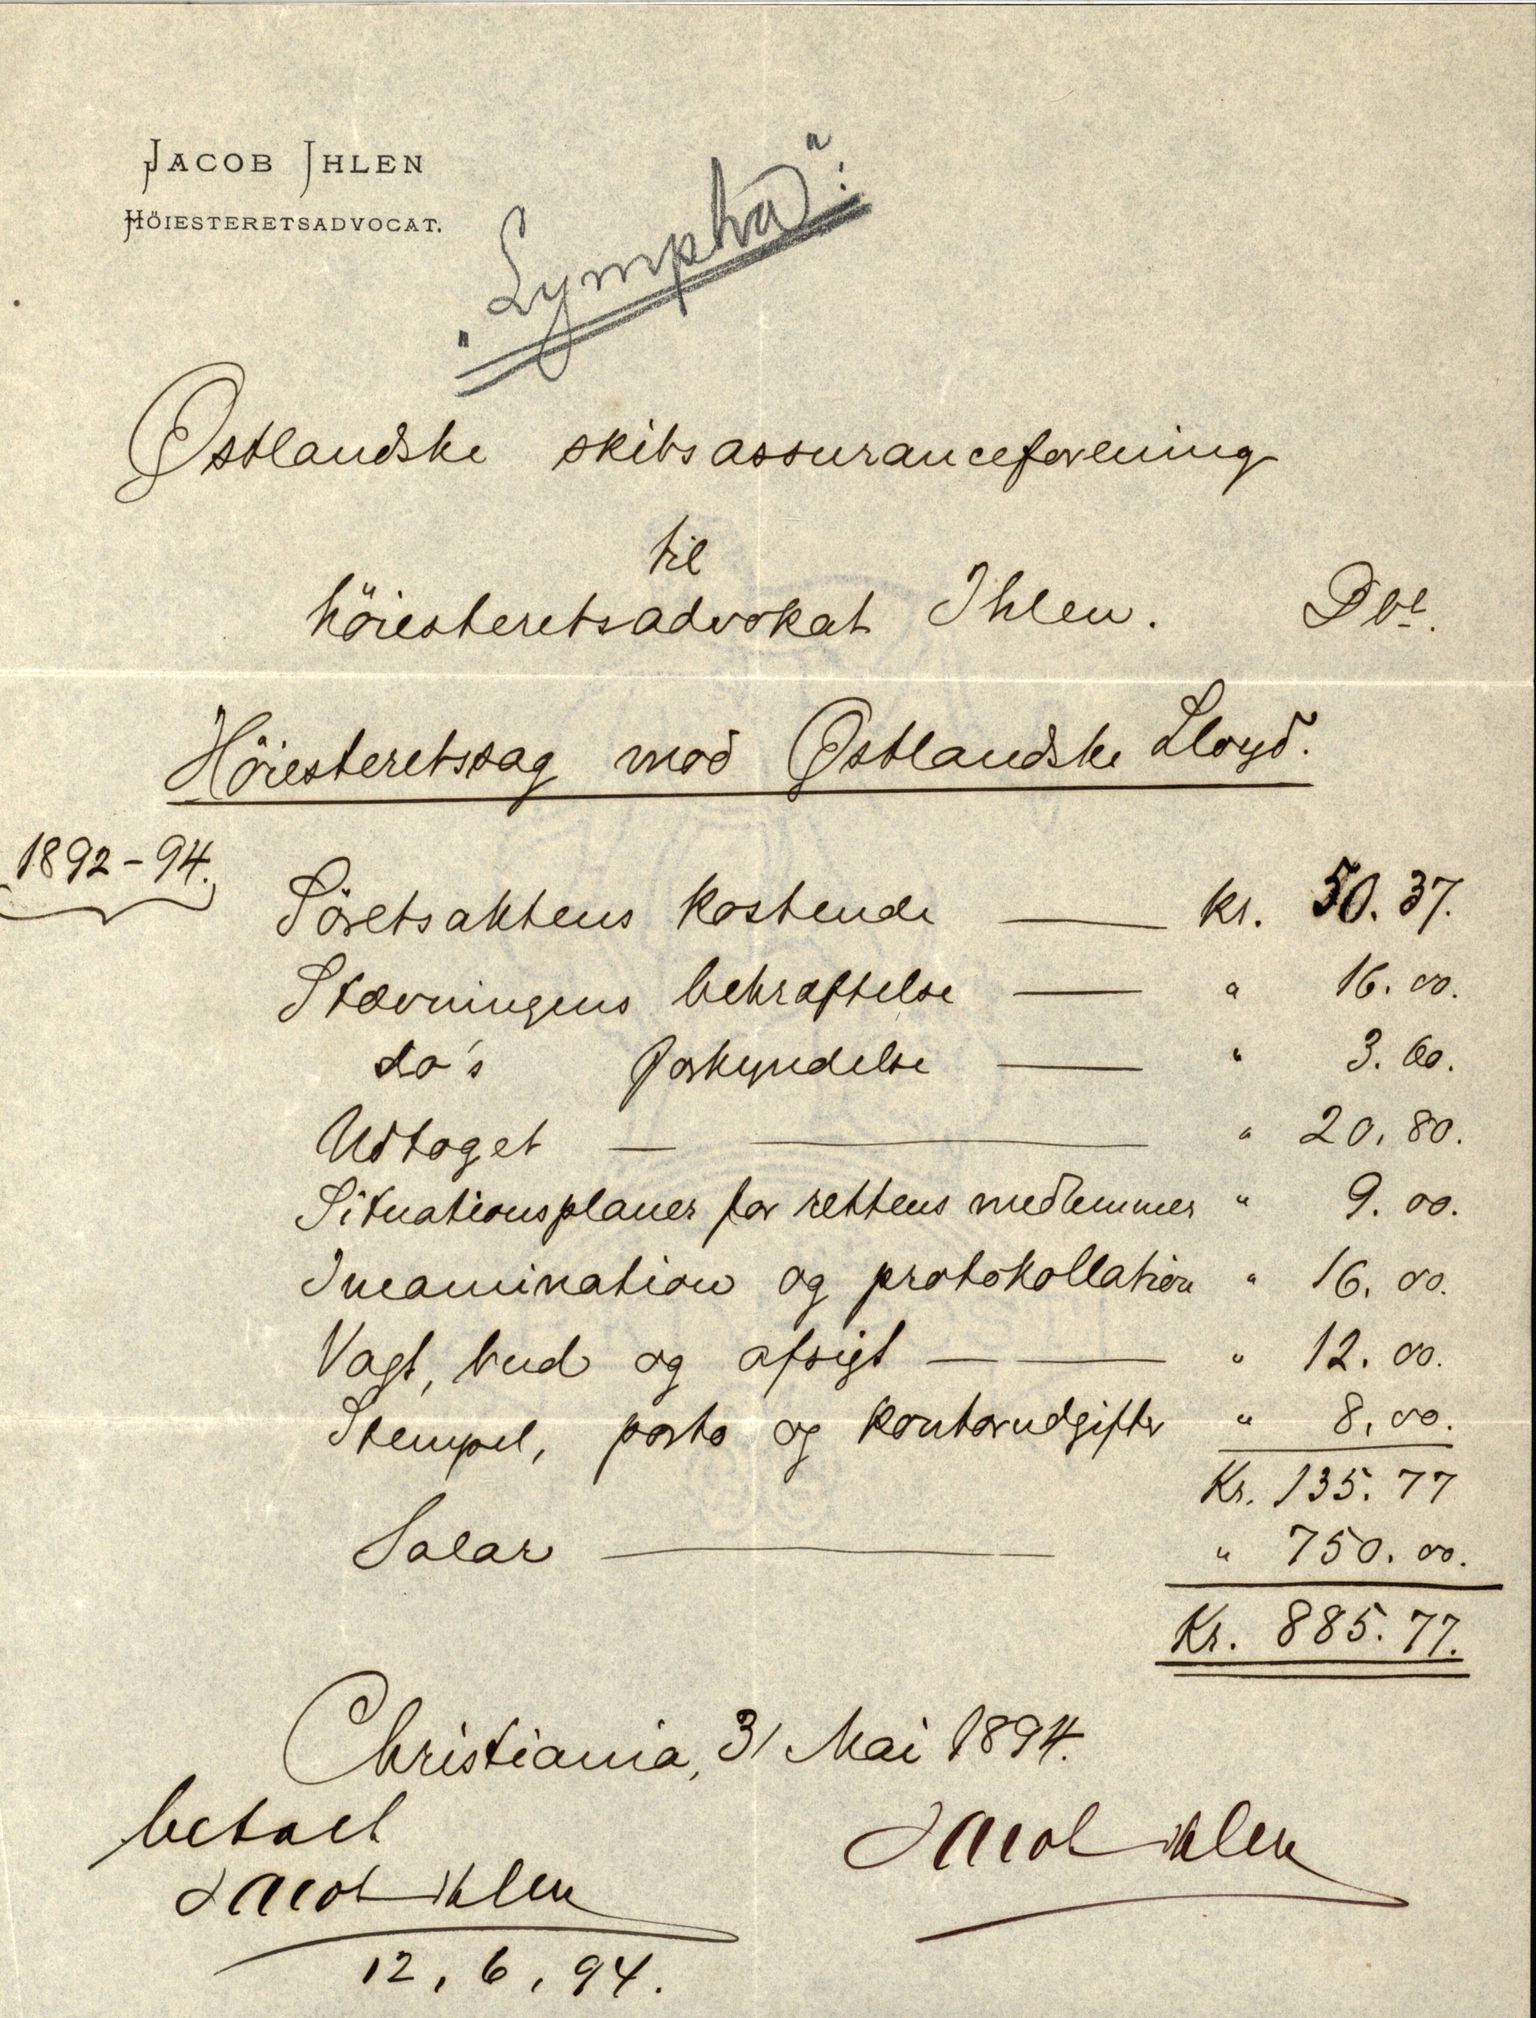 JACOB IHLEN
HÖIESTERETSADVOCAT.
"Lympha".
Østlandske skibsassuranceforening
til
höiesteretsadvokat Ihlen. Dbe.
Höiesteretssag mod Østlandske Lloyd.
1892-94.
Söretsaktens kostende — kr. 50.37.
Stævningens bekræftelse — " 16.00.
do's forkyndelse — " 3.60.
Udtoget — — " 20.80.
Situationsplaner for rettens medlemmer " 9.00.
Incamination og protokollation " 16.00.
Vagt, bud og afsigt — — " 12.00.
Stempel, porto og kontorudgifter " 8.00.
Kr. 135.77
Salær — " 750.00.
Kr. 885.77.
Christiania, 31 Mai 1894.
betalt
Jacob Ihlen
Jacob Ihlen
12.6.94.